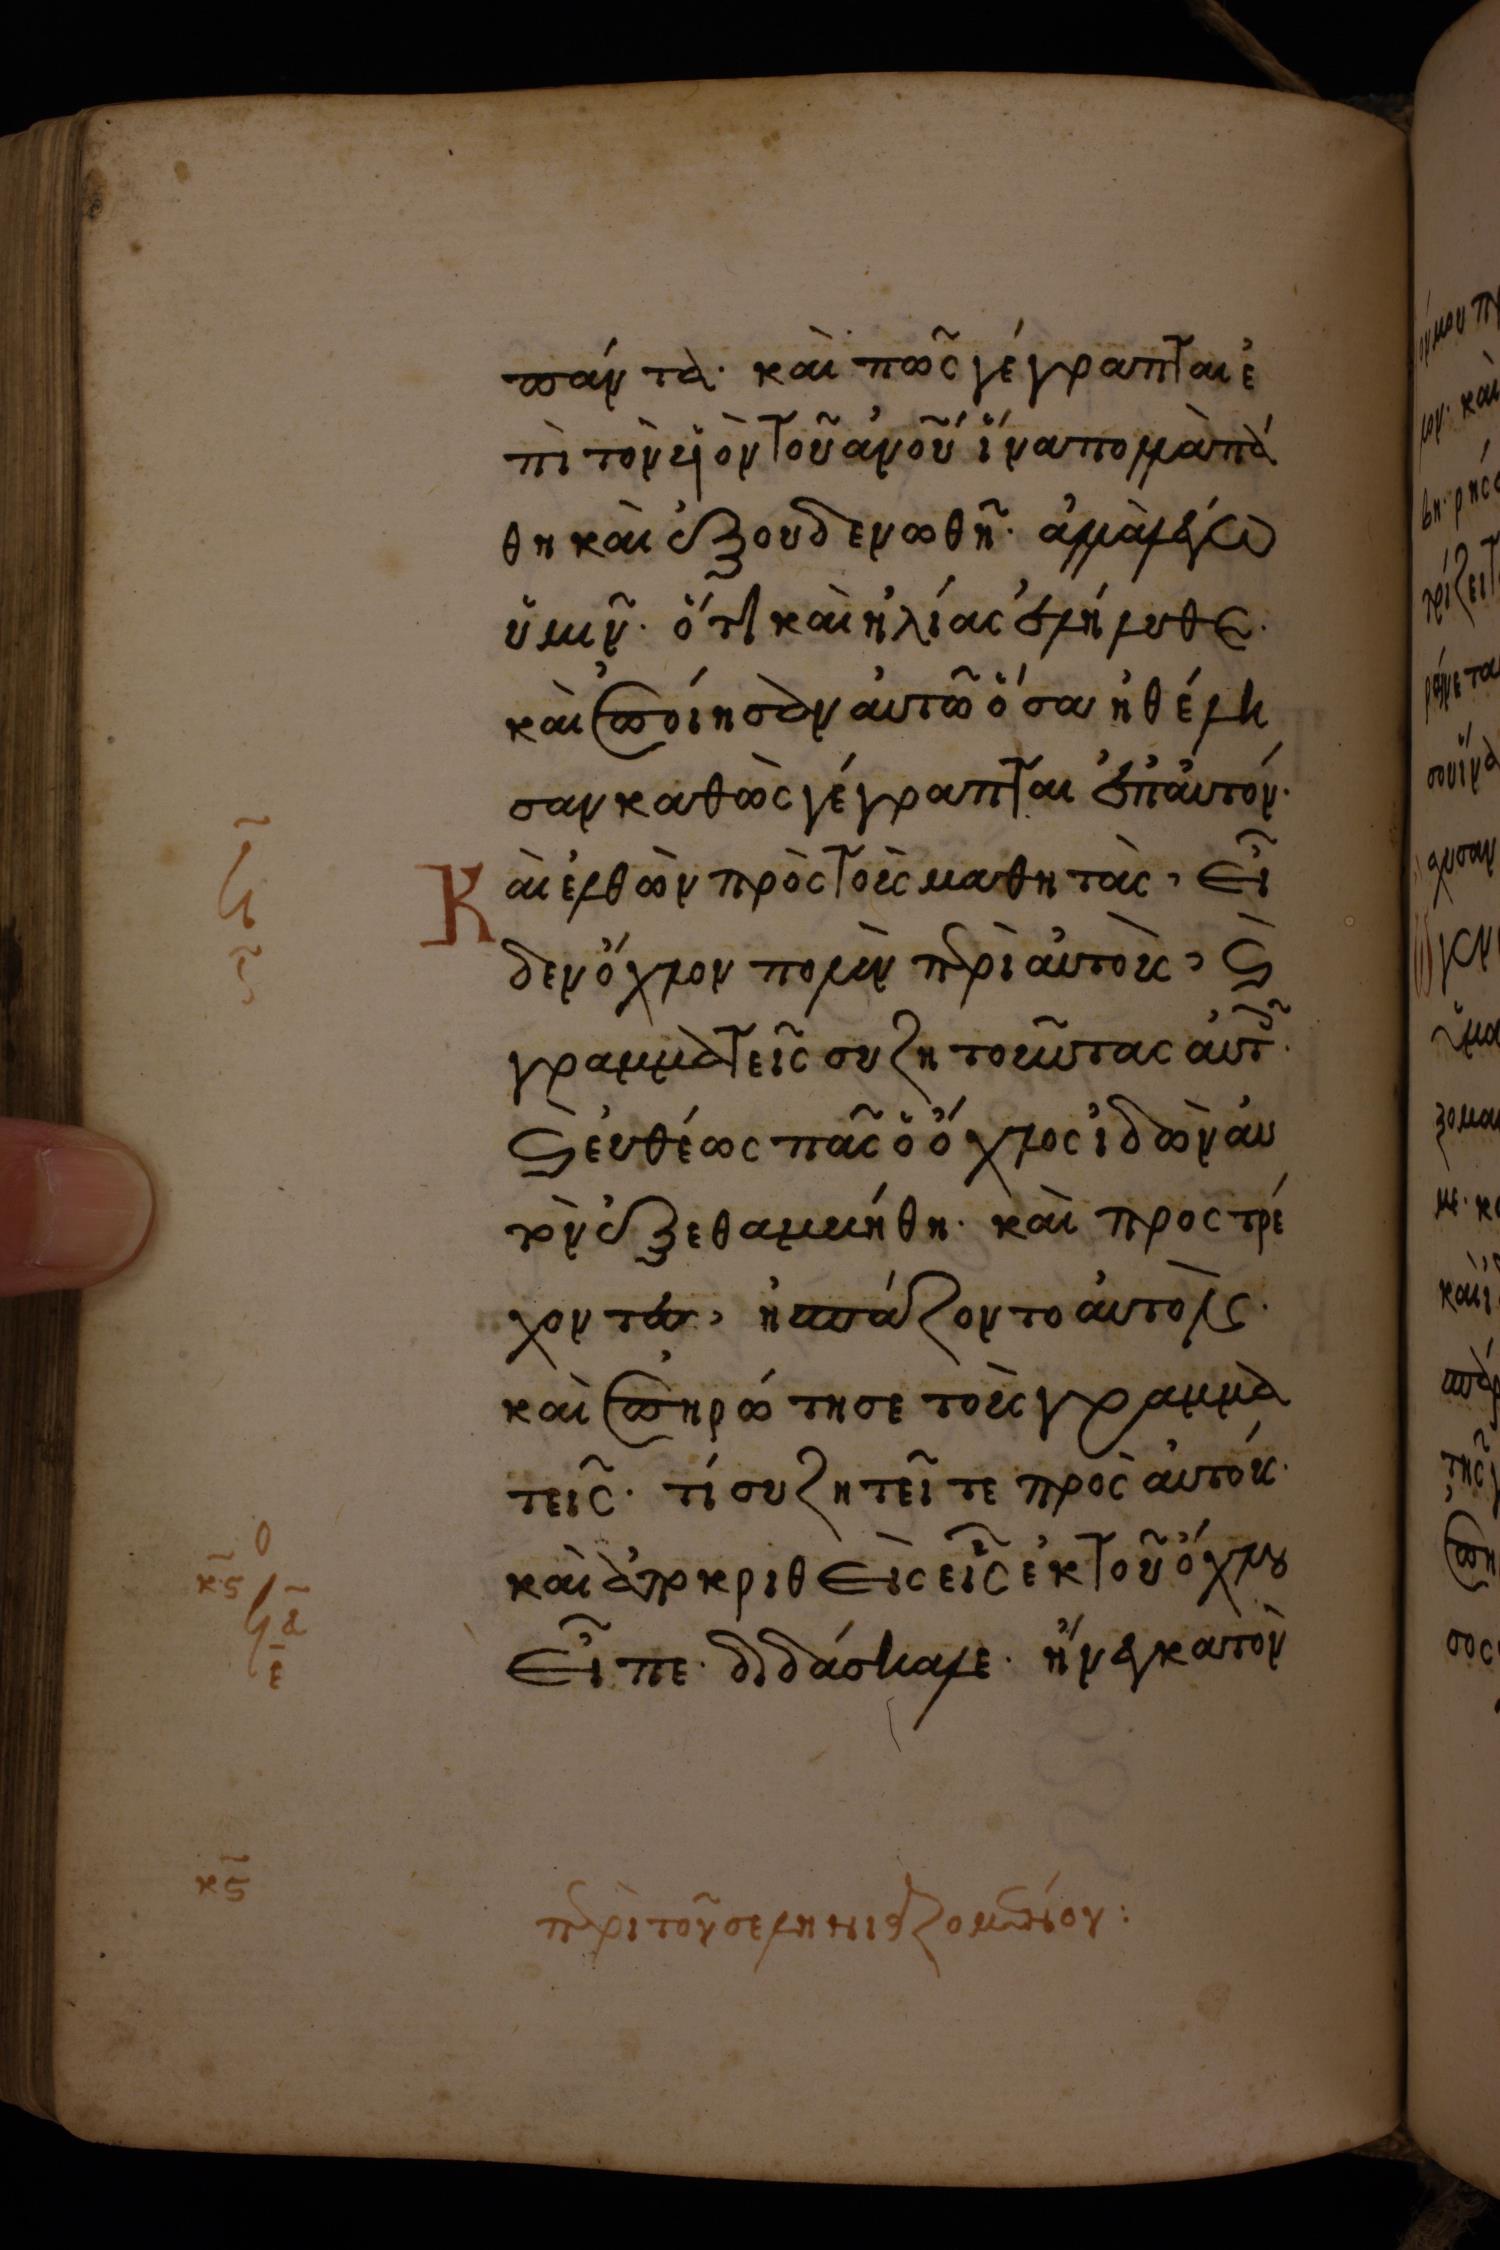 πάντα· καὶ πῶς γέγραπται ἐ
πὶ τὸν υἱὸν τοῦ ἀνοῦ ἵνα πολλὰ πά
θη καὶ ἐξουδενωθῆ· ἀλλὰ λέγω
ὑμῖν· ὅτι καὶ ἠλίας ἐλήλυθε·
καὶ ἐποίησαν αὐτῶ ὅσα ἠθέλη
σαν καθὼς γέγραπται ἐπ' αὐτόν·
Καὶ ἐλθὼν πρὸς τοὺς μαθητὰς, εἶ
δεν ὄχλον πολὺν περὶ αὐτοὺς, καὶ
γραμματεῖς συζητοῦντας αὐτοῖς·
καὶ εὐθέως πᾶς ὁ ὄχλος ἰδὼν αὐ
τὸν ἐξεθαμβήθη· καὶ προστρέ
χοντες, ἠσπάζοντο αὐτόν·
καὶ ἐπηρώτησε τοὺς γραμμα
τεῖς· τί συζητεῖτε πρὸς αὐτούς·
καὶ ἀποκριθεὶς εἷς ἐκ τοῦ ὄχλου
εἶπε· διδάσκαλε· ἤνεγκα τὸν
κς
κς
περὶ τοῦ σεληνιαζομένου: